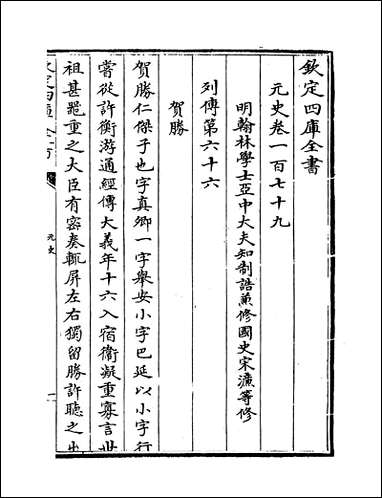 欽定四庫全書
元史卷一百七十九
明翰林學士亞中大夫知制誥兼修國史宋濂等修
列傳第六十六
賀勝
賀勝仁傑子也字真卿一字舉安小字巴延以小字行
嘗從許衡游通經傳大義年十六入宿衛凝重寡言世
祖甚器重之大臣有密奏輒屏左右獨留勝許聽之出
元史
一